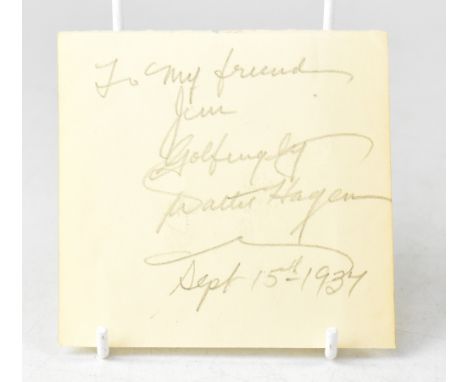 To My friend
Jim
Golfingly
Walter Hagen
Sept 15th 1937